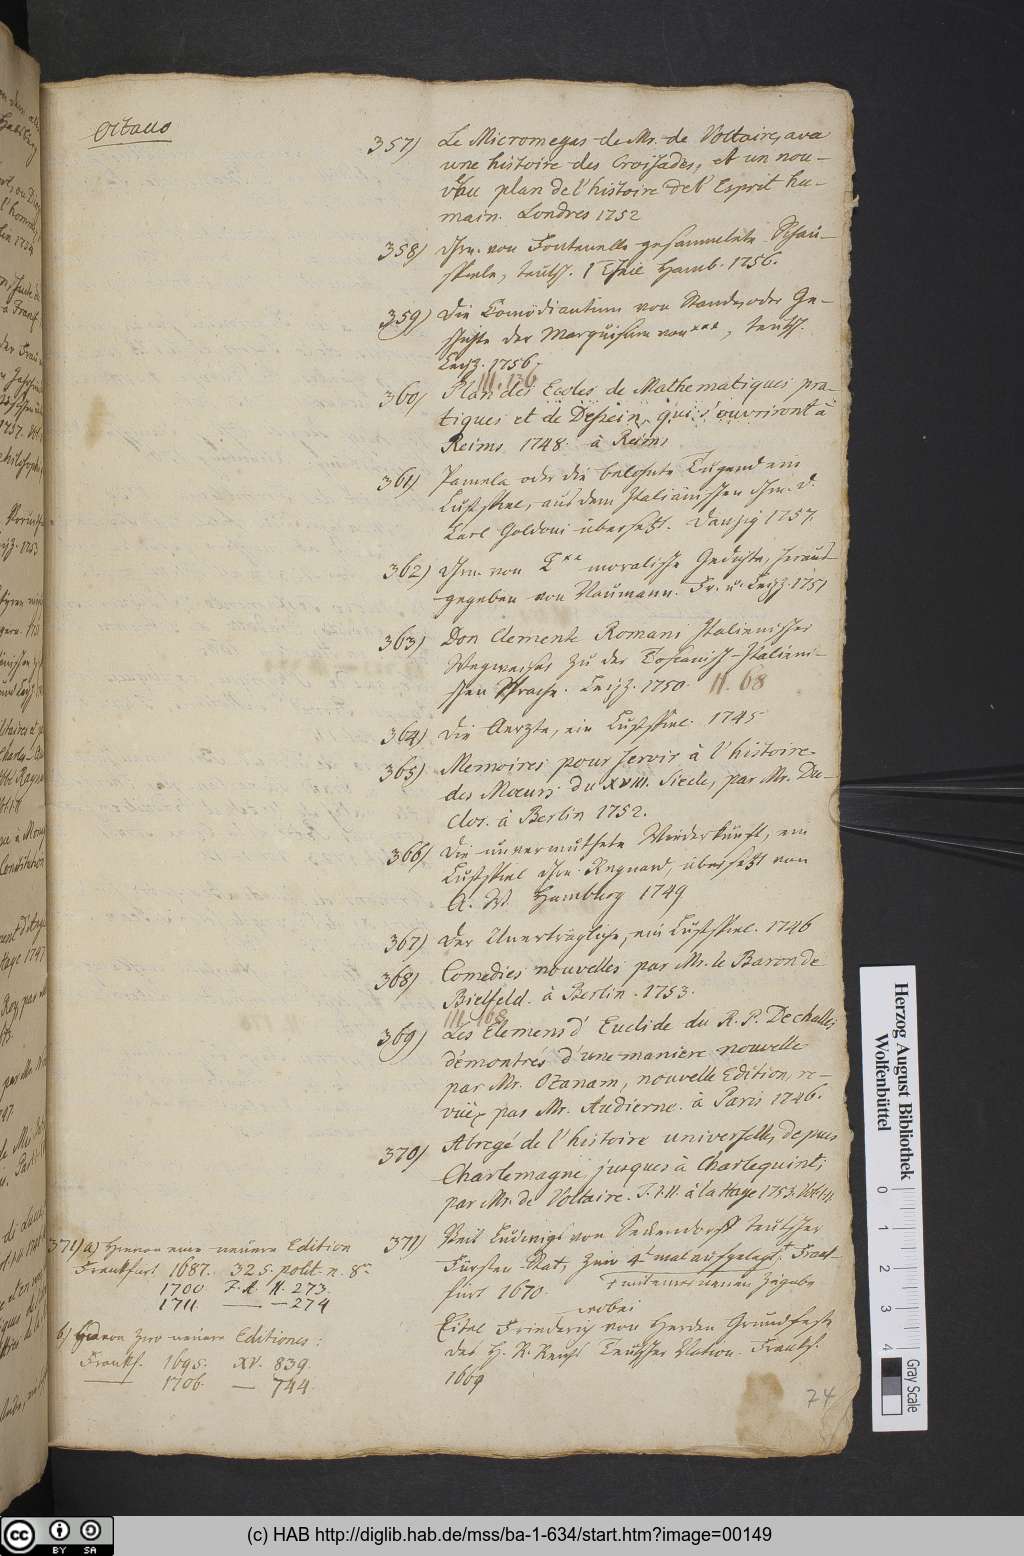 Octavo
357) Le Micromegas de Mr. de Voltaire, avec
une histoire des Croisades, et un nou-
veau plan de l'histoire de l'Esprit hu-
main. Londres 1752
358) Hrn. von Fontenelle gesammelete Schau-
spiele, teutsch. 1 Theil Hamb. 1756.
359) Die Comödiantinn von Stande, oder Ge-
schichte der Marquisinn von ***, teutsch.
Leipz. 1756.
III. 136
360) Plan des Ecoles de Mathematiques pra-
tiques et de Dessein, qui s'ouvriront à
Reims 1748. à Reims
361) Pamela oder die belohnte Tugend ein
Lustspiel, aus dem Italiänischen Hrn. D.
Carl Goldoni übersetzt. Danzig 1757.
362) Hrn. von L** moralische Gedichte, heraus-
gegeben von Naumann. Fr. u. Leipz. 1751
363) Don Clemente Romani Italienischer
Wegweiser zu der Toscanisch-Italieni-
schen Sprache. Leipz. 1750. II. 68
364) Die Aerzte, ein Lustspiel. 1745
365) Memoires pour servir à l'histoire
des Mœurs du XVIII. Siecle, par Mr. Du-
clos. à Berlin 1752.
366) Die unvermuthete Wiederkunft, ein
Lustspiel Hrn. Regnard, übersetzt von
A. W. Hamburg 1749
367) Der Unerträgliche, ein Lustspiel. 1746
368) Comedies nouvelles par Mr. le Baron de
Bielfeld. à Berlin. 1753.
III. 168
369) Les Elemens d'Euclide du R. P. Dechalles
démontres d'une maniere nouvelle
par Mr. Ozanam, nouvelle Edition, re-
vüe par Mr. Audierne. à Paris 1746.
370) Abregé de l'histoire universelle, depuis
Charlemagne, jusques à Charlequint,
par Mr. de Voltaire. T. I. II. à la Haye 1753. Vol. II.
371) Veit Ludwigs von Seckendorff teutscher
Fürsten Stat, zum 4t mal aufgelegt + Franck-
furt 1670. + mit einer neuen Zugabe
wobei
Eitel Friederich von Herden Grundfeste
des H. R. Reichs Teutscher Nation. Franckf.
1669
371) a) Hievon eine neuere Edition
Franckfurt 1687. 325. polit. n. 8
1700 II. 273.
1711 — — 274
b) Hievon zwo neuere Editiones:
Franckf. 1695. XV. 839.
1706. — 744.
74
Herzog August Bibliothek
Wolfenbüttel
0 1 2 3 4
Gray Scale
cc BY SA
(c) HAB http://diglib.hab.de/mss/ba-1-634/start.htm?image=00149